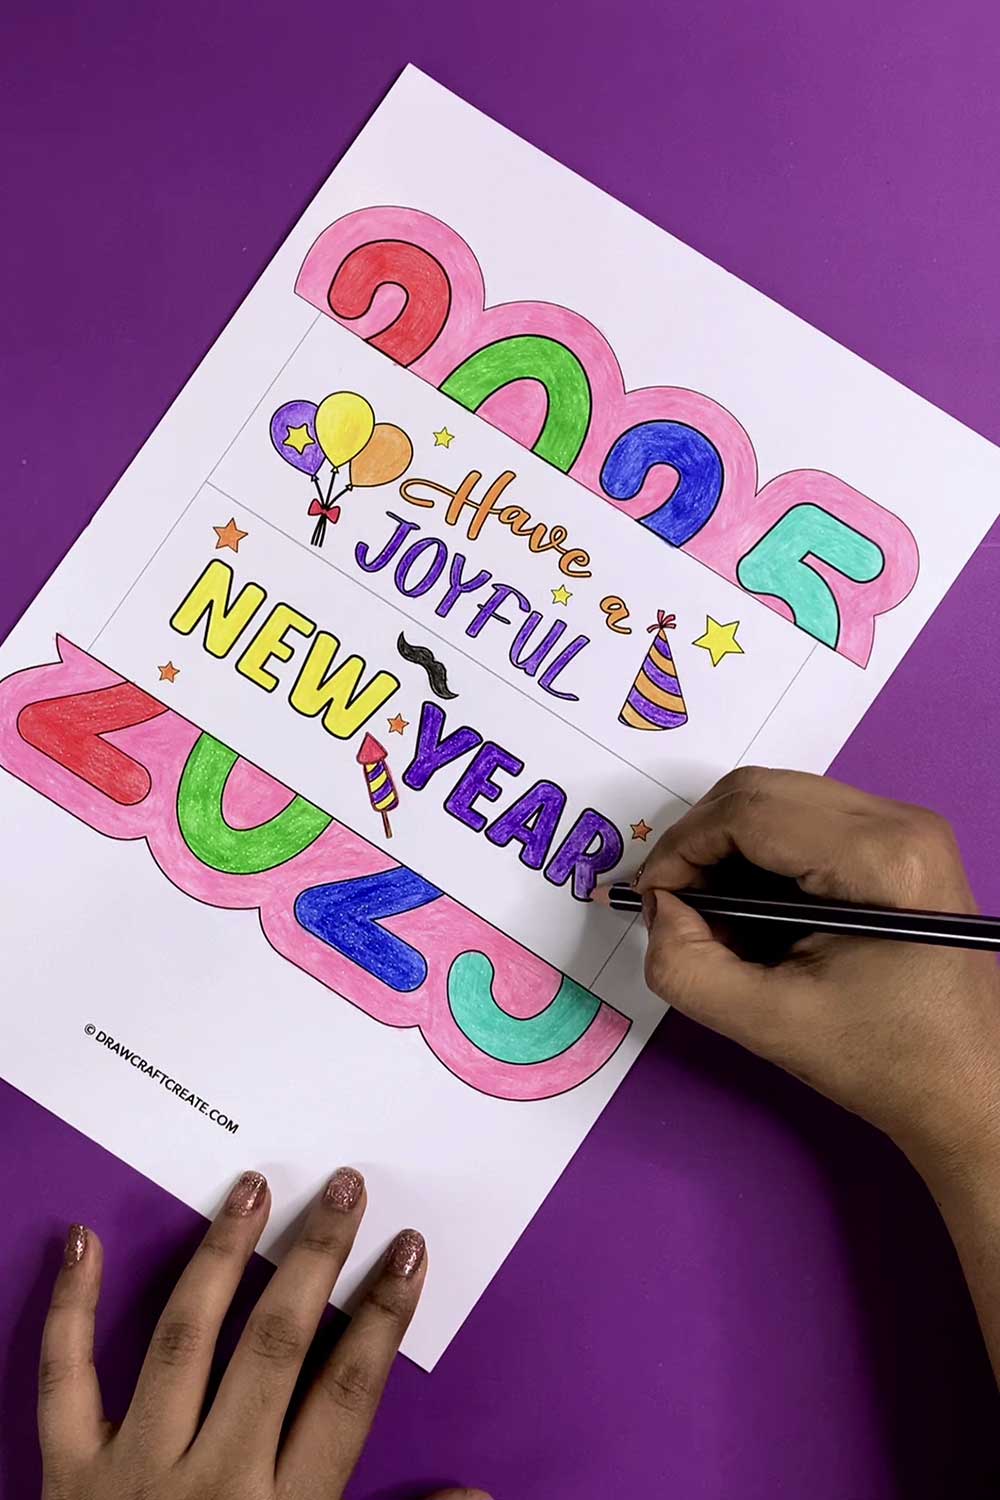 2025
Have a
JOYFUL
NEW YEAR
© DRAWCRAFTCREATE.COM